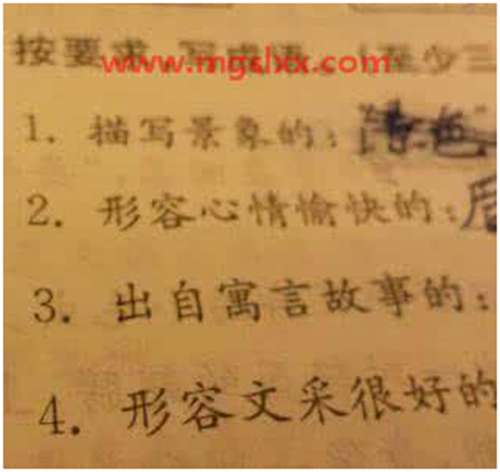 按要求 写成语 （至少三
www.mgslxx.com
1. 描写景象的：
2. 形容心情愉快的：
3. 出自寓言故事的：
4. 形容文采很好的